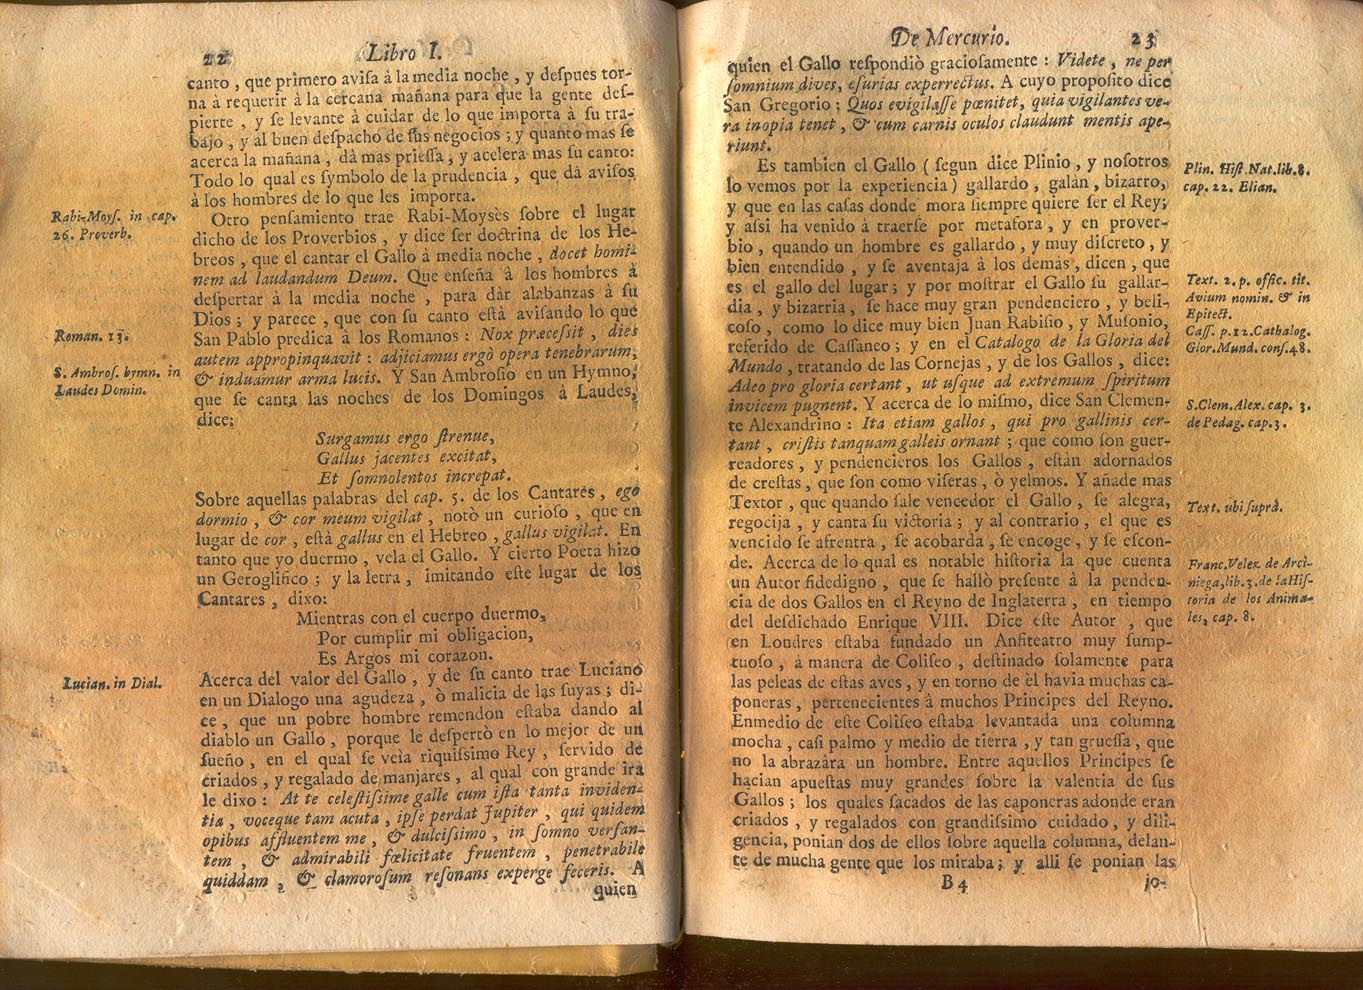 22 Libro I.
canto, que primero aviſa à la media noche, y deſpues tor-
na à requerir à la cercana mañana para que la gente deſ-
pierte, y ſe levante à cuidar de lo que importa à ſu tra-
bajo, y àl buen deſpacho de ſus negocios; y quanto mas ſe
acerca la mañana, dà mas prieſſa, y acelera mas ſu canto:
Todo lo qual es ſymbolo de la prudencia, que dà aviſos
à los hombres de lo que les importa.
Rabi-Moyſ. in cap.
26. Proverb.
Otro penſamiento trae Rabi-Moysès ſobre el lugar
dicho de los Proverbios, y dice ſer doctrina de los He-
breos, que el cantar el Gallo à media noche, docet homi-
nem ad laudandum Deum. Que enſeña à los hombres à
deſpertar à la media noche, para dàr alabanzas à ſu
Dios; y parece, que con ſu canto eſtà aviſando lo que
Roman. 13.
San Pablo predica à los Romanos: Nox præceſsit, dies
autem appropinquavit: adjiciamus ergò opera tenebrarum,
S. Ambroſ. hymn. in
Laudes Domin.
& induamur arma lucis. Y San Ambroſio en un Hymno,
que ſe canta las noches de los Domingos à Laudes,
dice:
Surgamus ergo ſtrenue,
Gallus jacentes excitat,
Et ſomnolentos increpat.
Sobre aquellas palabras del cap. 5. de los Cantares, ego
dormio, & cor meum vigilat, notò un curioſo, que en
lugar de cor, eſtà gallus en el Hebreo, gallus vigilat. En
tanto que yo duermo, vela el Gallo. Y cierto Poeta hizo
un Geroglifico; y la letra, imitando eſte lugar de los
Cantares, dixo:
Mientras con el cuerpo duermo,
Por cumplir mi obligacion,
Es Argos mi corazon.
Lucian. in Dial.
Acerca del valor del Gallo, y de ſu canto trae Luciano
en un Dialogo una agudeza, ò malicia de las ſuyas; di-
ce, que un pobre hombre remendon eſtaba dando al
diablo un Gallo, porque le deſpertò en lo mejor de un
ſueño, en el qual ſe veìa riquiſsimo Rey, ſervido de
criados, y regalado de manjares, al qual con grande ira
le dixo: At te celeſtiſsime galle cum iſta tanta inviden-
tia, voceque tam acuta, ipſe perdat Jupiter, qui quidem
opibus affluentem me, & dulciſsimo, in ſomno verſan-
tem, & admirabili fœlicitate fruentem, penetrabile
quiddam, & clamoroſum reſonans experge feceris. A
quien
De Mercurio. 23
quien el Gallo reſpondiò gracioſamente: Videte, ne per
ſomnium dives, eſurias experrectus. A cuyo propoſito dice
San Gregorio: Quos evigilaſſe pœnitet, quia vigilantes ve-
ra inopia tenet, & cum carnis oculos claudunt mentis ape-
riunt.
Es tambien el Gallo (ſegun dice Plinio, y noſotros
lo vemos por la experiencia) gallardo, galàn, bizarro,
y que en las caſas donde mora ſiempre quiere ſer el Rey;
y aſsi ha venido à traerſe por metafora, y en prover-
bio, quando un hombre es gallardo, y muy diſcreto, y
bien entendido, y ſe aventaja à los demàs, dicen, que
es el gallo del lugar; y por moſtrar el Gallo ſu gallar-
dia, y bizarria, ſe hace muy gran pendenciero, y beli-
coſo, como lo dice muy bien Juan Rabiſio, y Muſonio,
referido de Caſſaneo; y en el Catalogo de la Gloria del
Mundo, tratando de las Cornejas, y de los Gallos, dice:
Adeo pro gloria certant, ut uſque ad extremum ſpiritum
invicem pugnent. Y acerca de lo miſmo, dice San Clemen-
te Alexandrino: Ita etiam gallos, qui pro gallinis cer-
tant, criſtis tanquam galleis ornant; que como ſon guer-
readores, y pendencieros los Gallos, eſtàn adornados
de creſtas, que ſon como viſeras, ò yelmos. Y añade mas
Textor, que quando ſale vencedor el Gallo, ſe alegra,
regocija, y canta ſu victoria; y al contrario, el que es
vencido ſe afrentra, ſe acobarda, ſe encoge, y ſe eſcon-
de. Acerca de lo qual es notable hiſtoria la que cuenta
un Autor fidedigno, que ſe hallò preſente à la penden-
cia de dos Gallos en el Reyno de Inglaterra, en tiempo
del deſdichado Enrique VIII. Dice eſte Autor, que
en Londres eſtaba fundado un Anfiteatro muy ſump-
tuoſo, à manera de Coliſeo, deſtinado ſolamente para
las peleas de eſtas aves, y en torno de èl havia muchas ca-
poneras, pertenecientes à muchos Principes del Reyno.
Enmedio de eſte Coliſeo eſtaba levantada una columna
mocha, caſi palmo y medio de tierra, y tan grueſſa, que
no la abrazàra un hombre. Entre aquellos Principes ſe
hacian apueſtas muy grandes ſobre la valentia de ſus
Gallos; los quales ſacados de las caponeras adonde eran
criados, y regalados con grandiſsimo cuidado, y dili-
gencia, ponian dos de ellos ſobre aquella columna, delan-
te de mucha gente que los miraba; y alli ſe ponian las
B 4 jo-
Plin. Hiſt. Nat. lib. 8.
cap. 22. Elian.
Text. 2. p. offic. tit.
Avium nomin. & in
Epitect.
Caſſ. p. 12. Cathalog.
Glor. Mund. conſ. 48.
S. Clem. Alex. cap. 3.
de Pedag. cap. 3.
Text. ubi ſuprà.
Franc. Velez. de Arci-
niega, lib. 3. de la Hiſ-
toria de los Anima-
les, cap. 8.